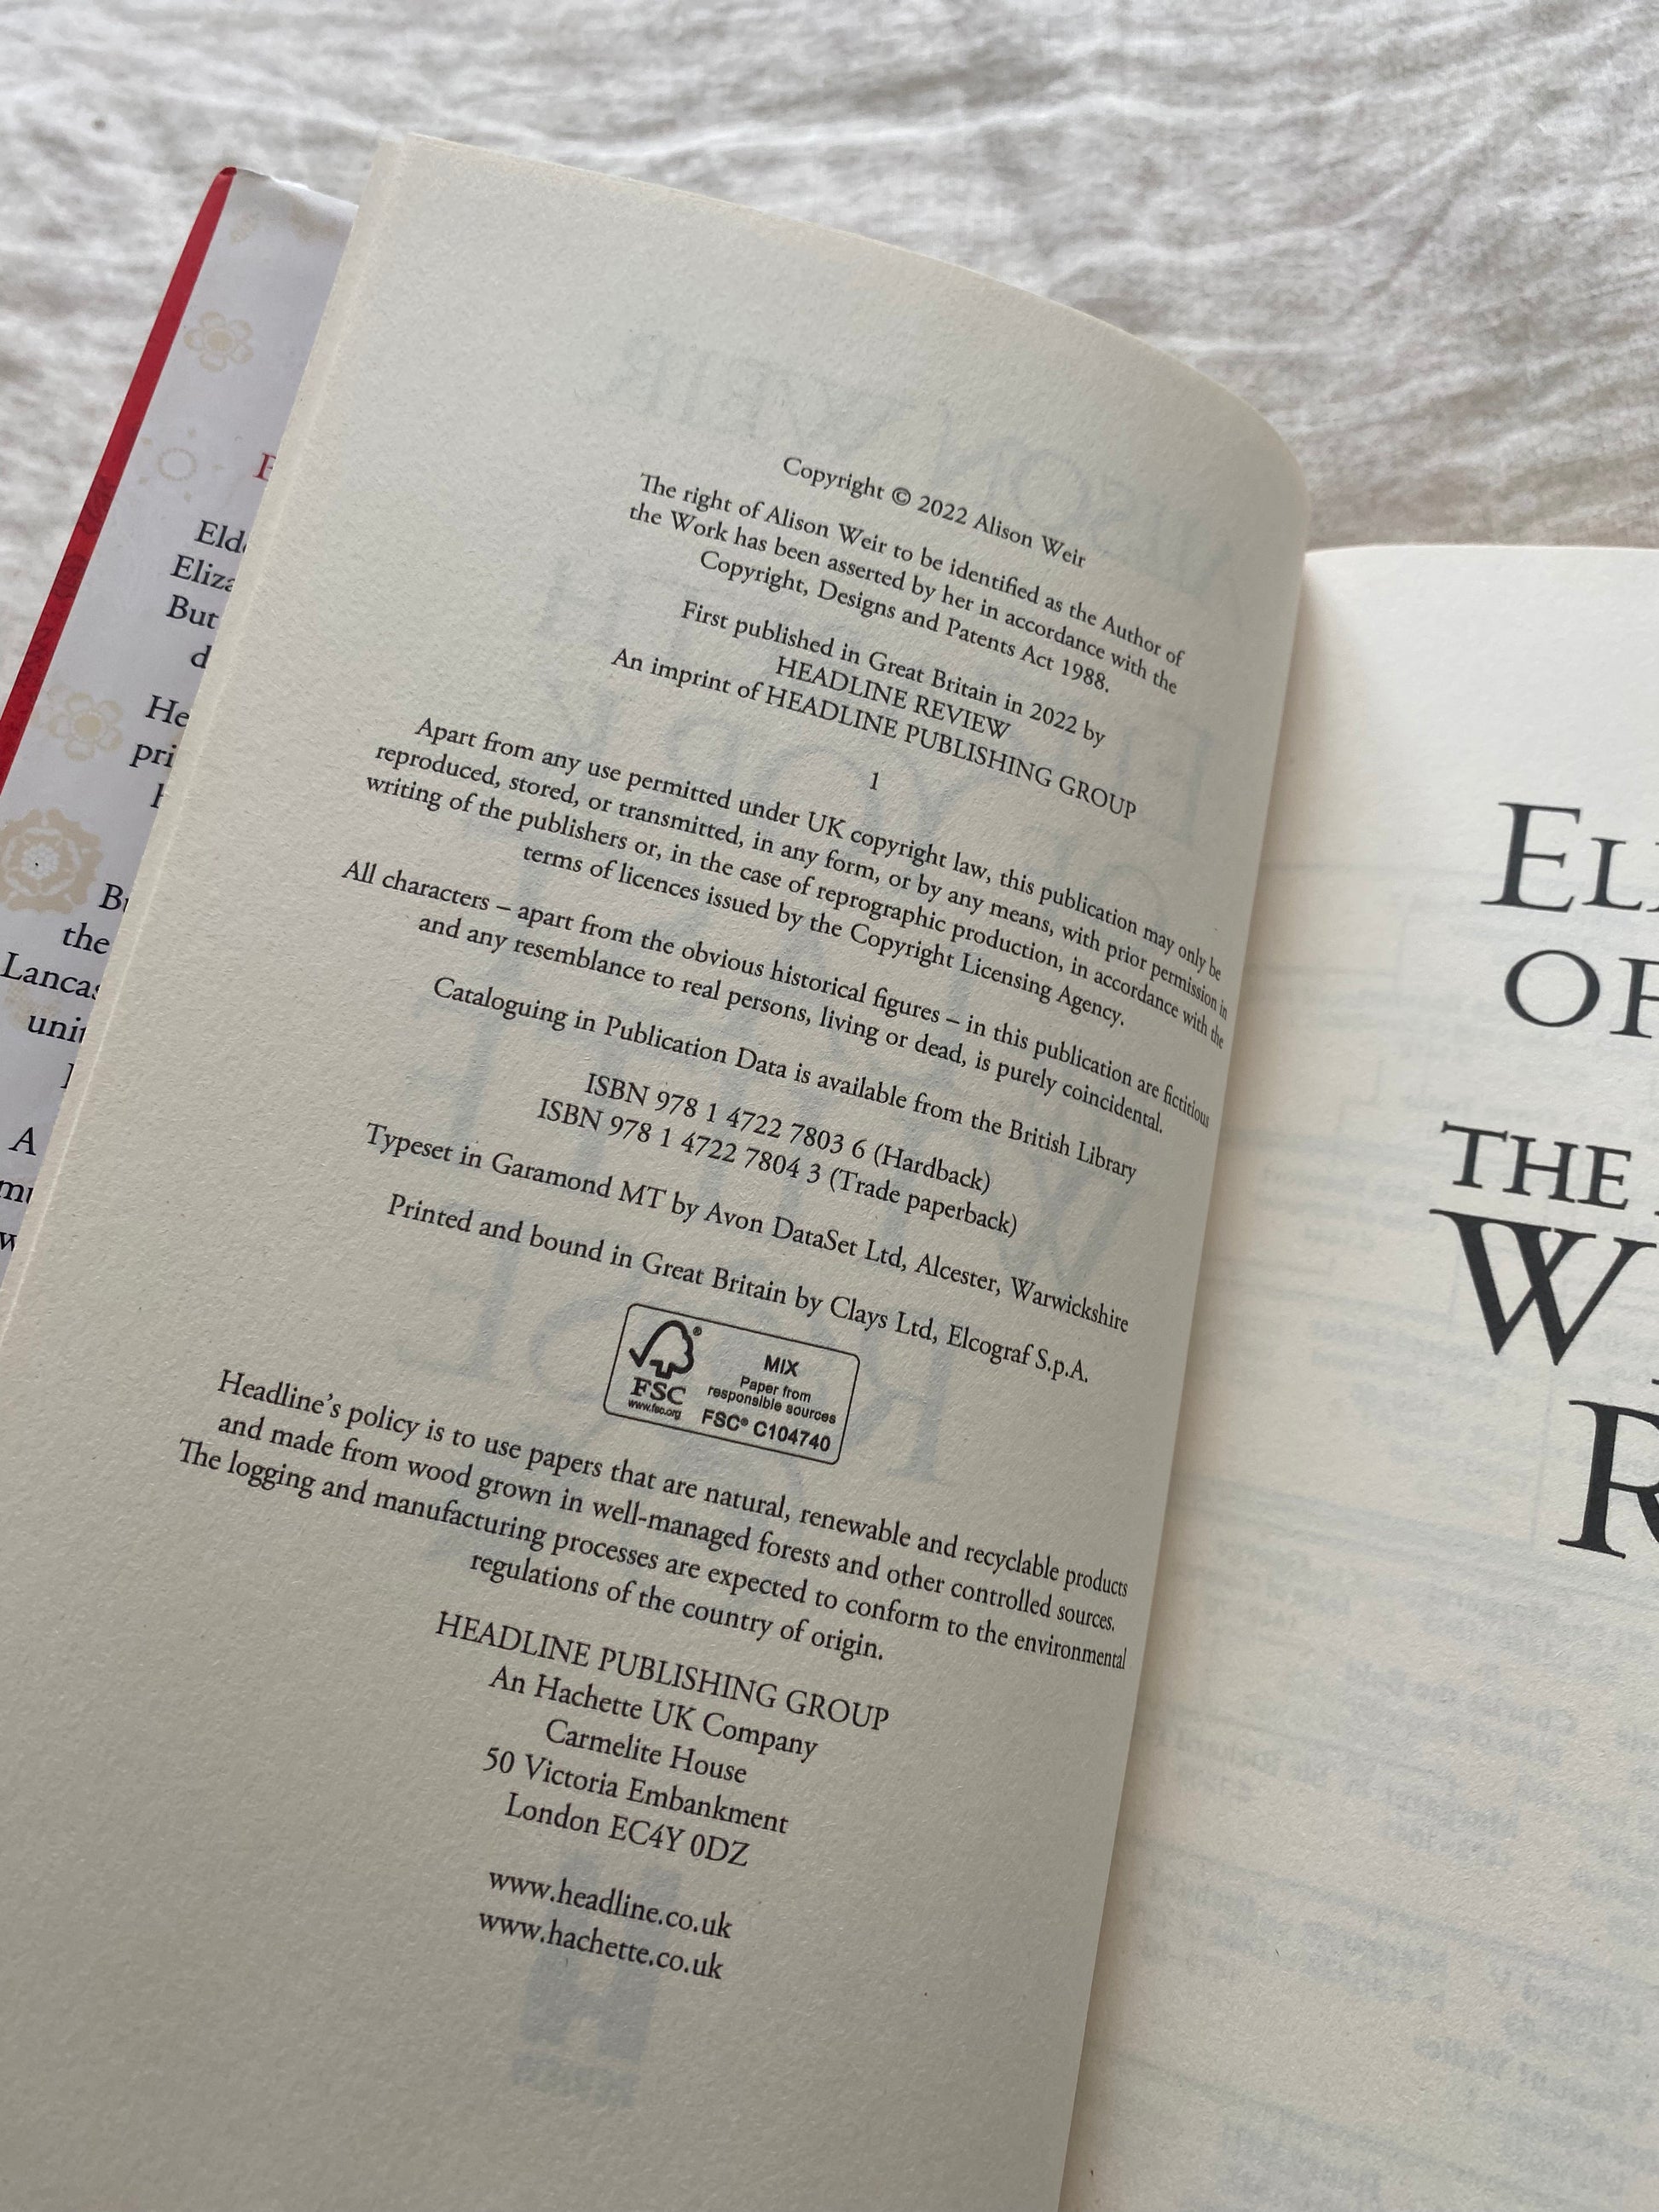 Eld
Eliza
But
d
He
pri
the
Lancas
unit
A
Copyright © 2022 Alison Weir
The right of Alison Weir to be identified as the Author of
the Work has been asserted by her in accordance with the
Copyright, Designs and Patents Act 1988.
First published in Great Britain in 2022 by
HEADLINE REVIEW
An imprint of HEADLINE PUBLISHING GROUP
1
Apart from any use permitted under UK copyright law, this publication may only be
reproduced, stored, or transmitted, in any form, or by any means, with prior permission in
writing of the publishers or, in the case of reprographic production, in accordance with the
terms of licences issued by the Copyright Licensing Agency.
All characters – apart from the obvious historical figures – in this publication are fictitious
and any resemblance to real persons, living or dead, is purely coincidental.
Cataloguing in Publication Data is available from the British Library
ISBN 978 1 4722 7803 6 (Hardback)
ISBN 978 1 4722 7804 3 (Trade paperback)
Typeset in Garamond MT by Avon DataSet Ltd, Alcester, Warwickshire
Printed and bound in Great Britain by Clays Ltd, Elcograf S.p.A.
FSC
www.fsc.org
MIX
Paper from
responsible sources
FSC® C104740
Headline's policy is to use papers that are natural, renewable and recyclable products
and made from wood grown in well-managed forests and other controlled sources.
The logging and manufacturing processes are expected to conform to the environmental
regulations of the country of origin.
HEADLINE PUBLISHING GROUP
An Hachette UK Company
Carmelite House
50 Victoria Embankment
London EC4Y 0DZ
www.headline.co.uk
www.hachette.co.uk
EL
OF
THE
W
R